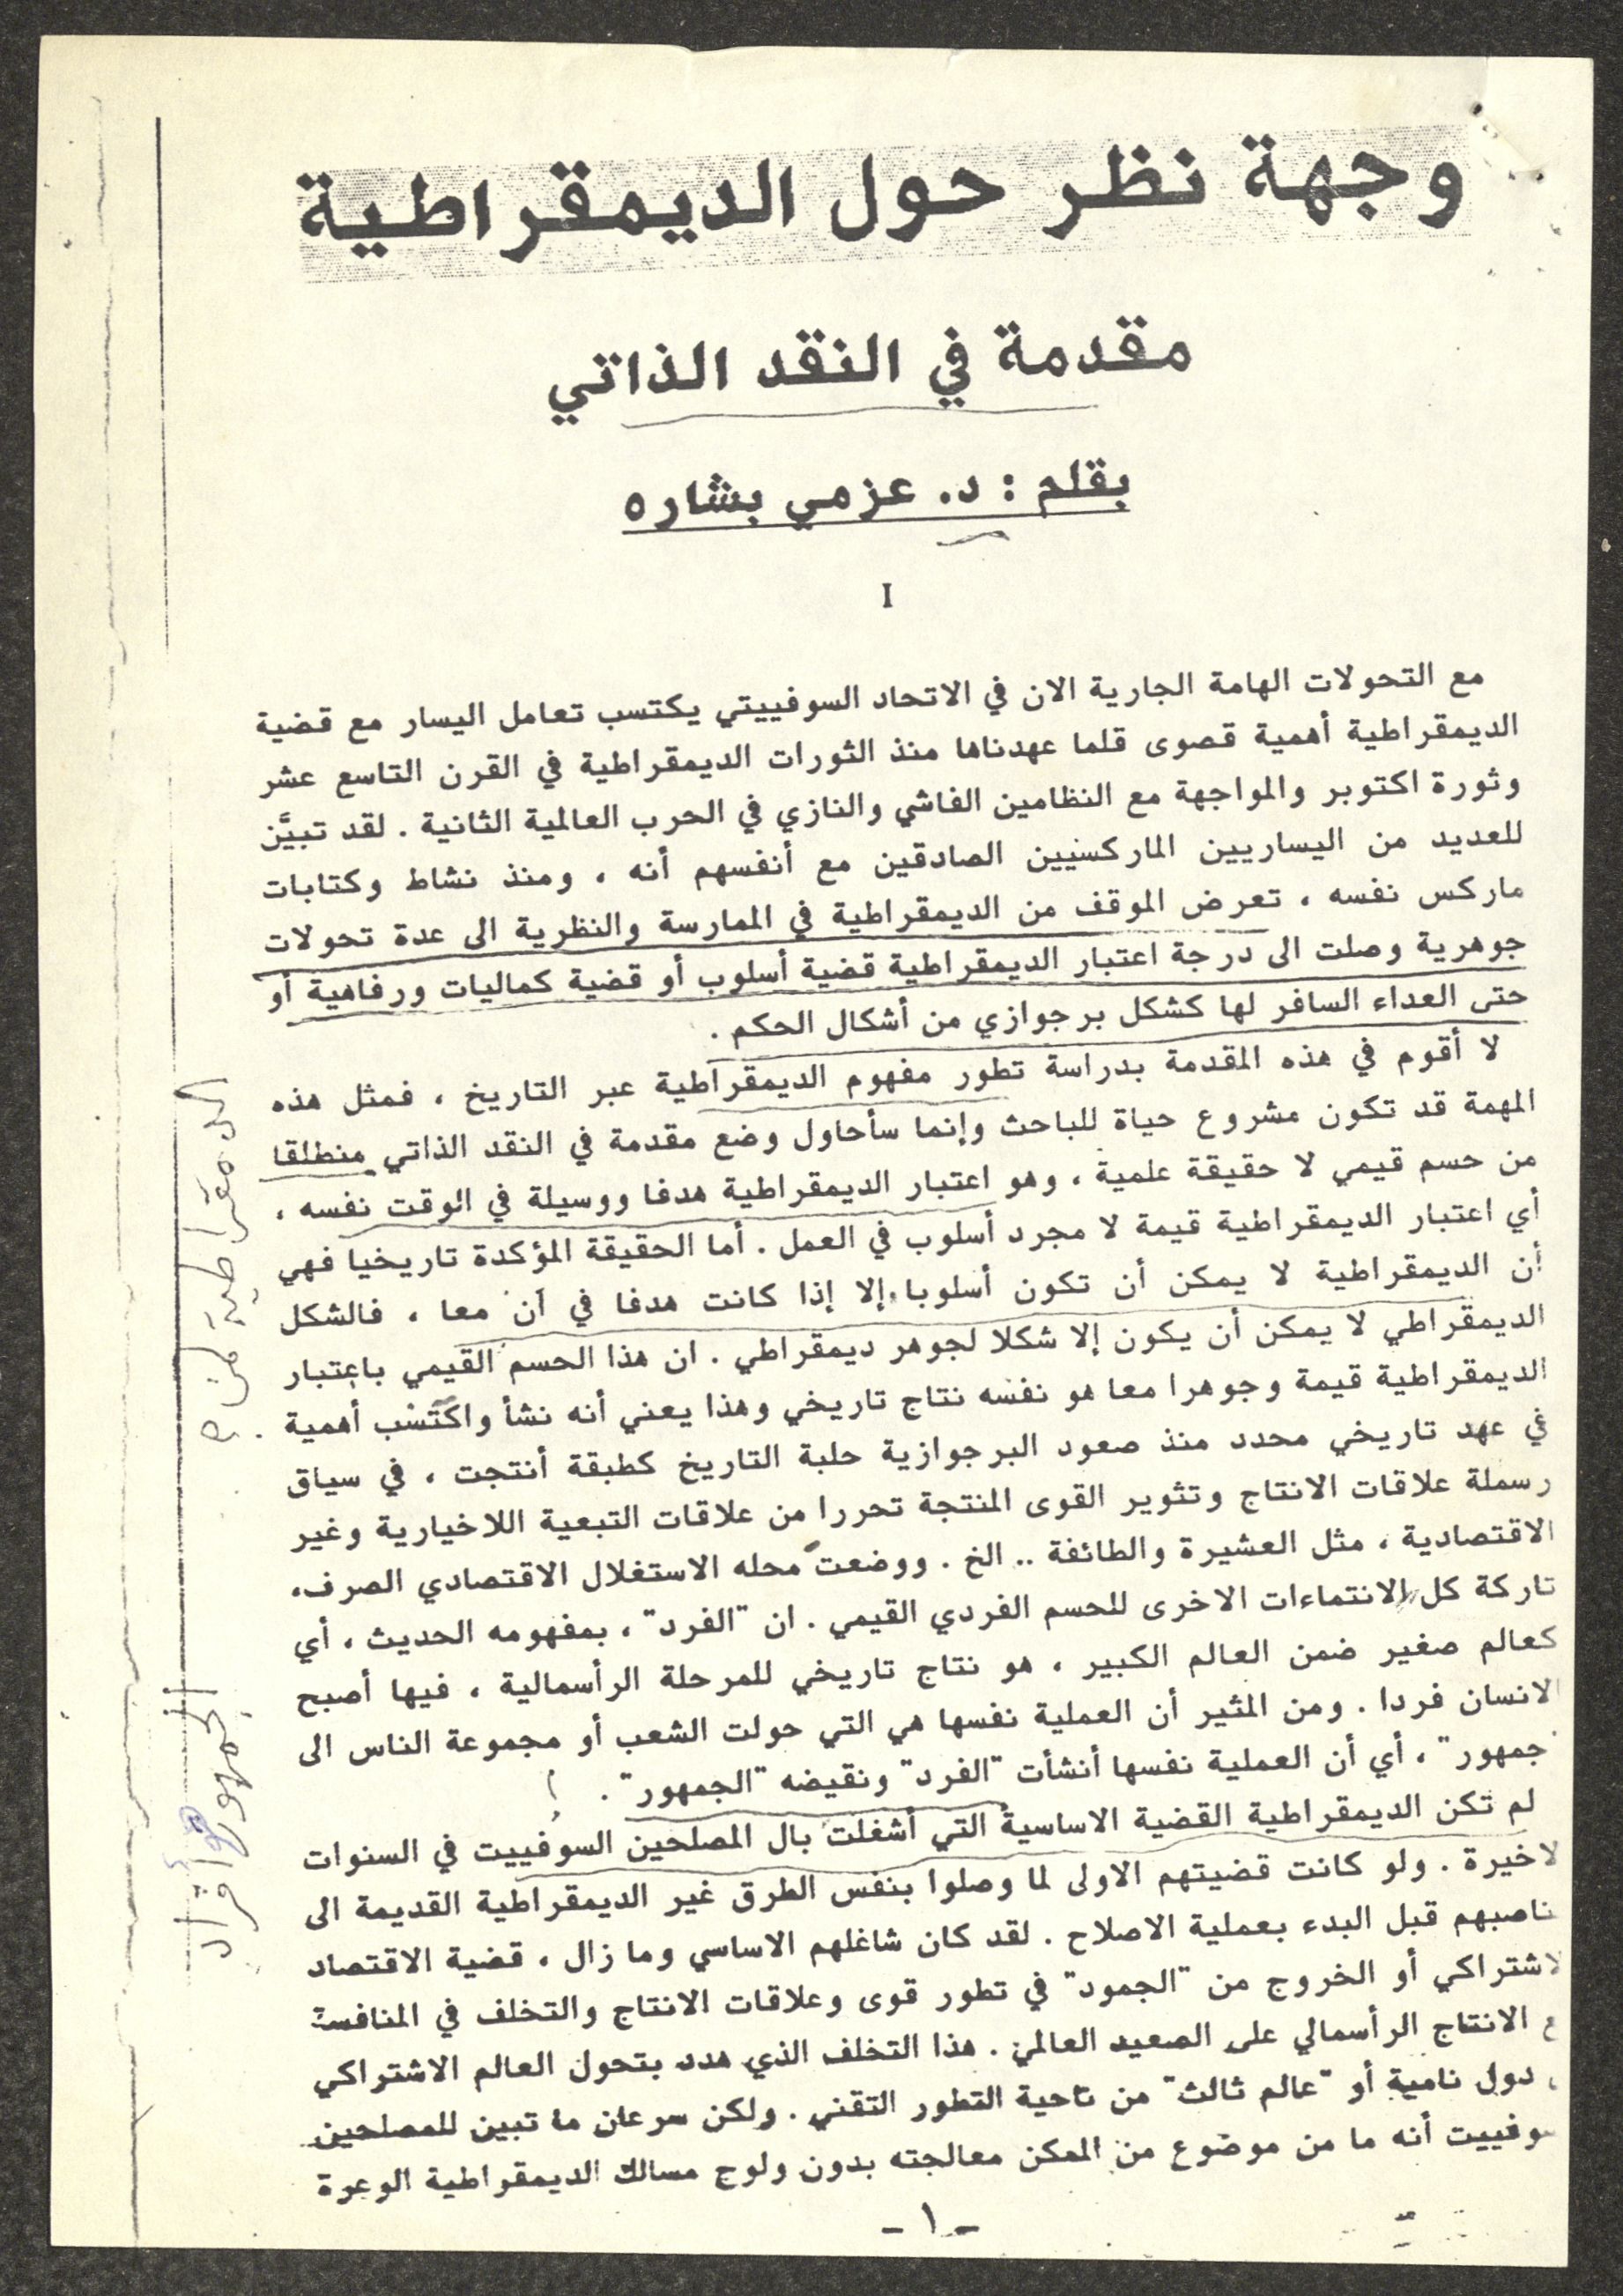 وجهة نظر حول الديمقراطية
مقدمة في النقد الذاتي
بقلم : د. عزمي بشاره
I
مع التحولات الهامة الجارية الان في الاتحاد السوفييتي يكتسب تعامل اليسار مع قضية
الديمقراطية أهمية قصوى قلما عهدناها منذ الثورات الديمقراطية في القرن التاسع عشر
وثورة اكتوبر والمواجهة مع النظامين الفاشي والنازي في الحرب العالمية الثانية . لقد تبيَّن
للعديد من اليساريين الماركسيين الصادقين مع أنفسهم أنه ، ومنذ نشاط وكتابات
ماركس نفسه ، تعرض الموقف من الديمقراطية في الممارسة والنظرية الى عدة تحولات
جوهرية وصلت الى درجة اعتبار الديمقراطية قضية أسلوب أو قضية كماليات ورفاهية أو
حتى العداء السافر لها كشكل برجوازي من أشكال الحكم .
لا أقوم في هذه المقدمة بدراسة تطور مفهوم الديمقراطية عبر التاريخ ، فمثل هذه
المهمة قد تكون مشروع حياة للباحث وإنما سأحاول وضع مقدمة في النقد الذاتي منطلقا
من حسم قيمي لا حقيقة علمية ، وهو اعتبار الديمقراطية هدفا ووسيلة في الوقت نفسه ،
أي اعتبار الديمقراطية قيمة لا مجرد أسلوب في العمل . أما الحقيقة المؤكدة تاريخيا فهي
أن الديمقراطية لا يمكن أن تكون أسلوبا إلا إذا كانت هدفا في آن معا ، فالشكل
الديمقراطي لا يمكن أن يكون إلا شكلا لجوهر ديمقراطي . ان هذا الحسم القيمي باعتبار
الديمقراطية قيمة وجوهرا معا هو نفسه نتاج تاريخي وهذا يعني أنه نشأ واكتسب أهمية
في عهد تاريخي محدد منذ صعود البرجوازية حلبة التاريخ كطبقة أنتجت ، في سياق
رسملة علاقات الانتاج وتثوير القوى المنتجة تحررا من علاقات التبعية اللاخيارية وغير
الاقتصادية ، مثل العشيرة والطائفة .. الخ . ووضعت محله الاستغلال الاقتصادي الصرف،
تاركة كل الانتماءات الاخرى للحسم الفردي القيمي . ان "الفرد" ، بمفهومه الحديث ، أي
كعالم صغير ضمن العالم الكبير ، هو نتاج تاريخي للمرحلة الرأسمالية ، فيها أصبح
الانسان فردا . ومن المثير أن العملية نفسها هي التي حولت الشعب أو مجموعة الناس الى
جمهور" ، أي أن العملية نفسها أنشأت "الفرد" ونقيضه "الجمهور" .
لم تكن الديمقراطية القضية الاساسية التي أشغلت بال المصلحين السوفييت في السنوات
لاخيرة . ولو كانت قضيتهم الاولى لما وصلوا بنفس الطرق غير الديمقراطية القديمة الى
ناصبهم قبل البدء بعملية الاصلاح . لقد كان شاغلهم الاساسي وما زال ، قضية الاقتصاد
لاشتراكي أو الخروج من "الجمود" في تطور قوى وعلاقات الانتاج والتخلف في المنافسة
ع الانتاج الرأسمالي على الصعيد العالمي . هذا التخلف الذي هدد بتحول العالم الاشتراكي
دول نامية أو "عالم ثالث" من ناحية التطور التقني . ولكن سرعان ما تبين للمصلحين
سوفييت أنه ما من موضوع من الممكن معالجته بدون ولوج مسالك الديمقراطية الوعرة
- ١ -
الديمقراطية لمن ؟
الجمهور هو أفراد